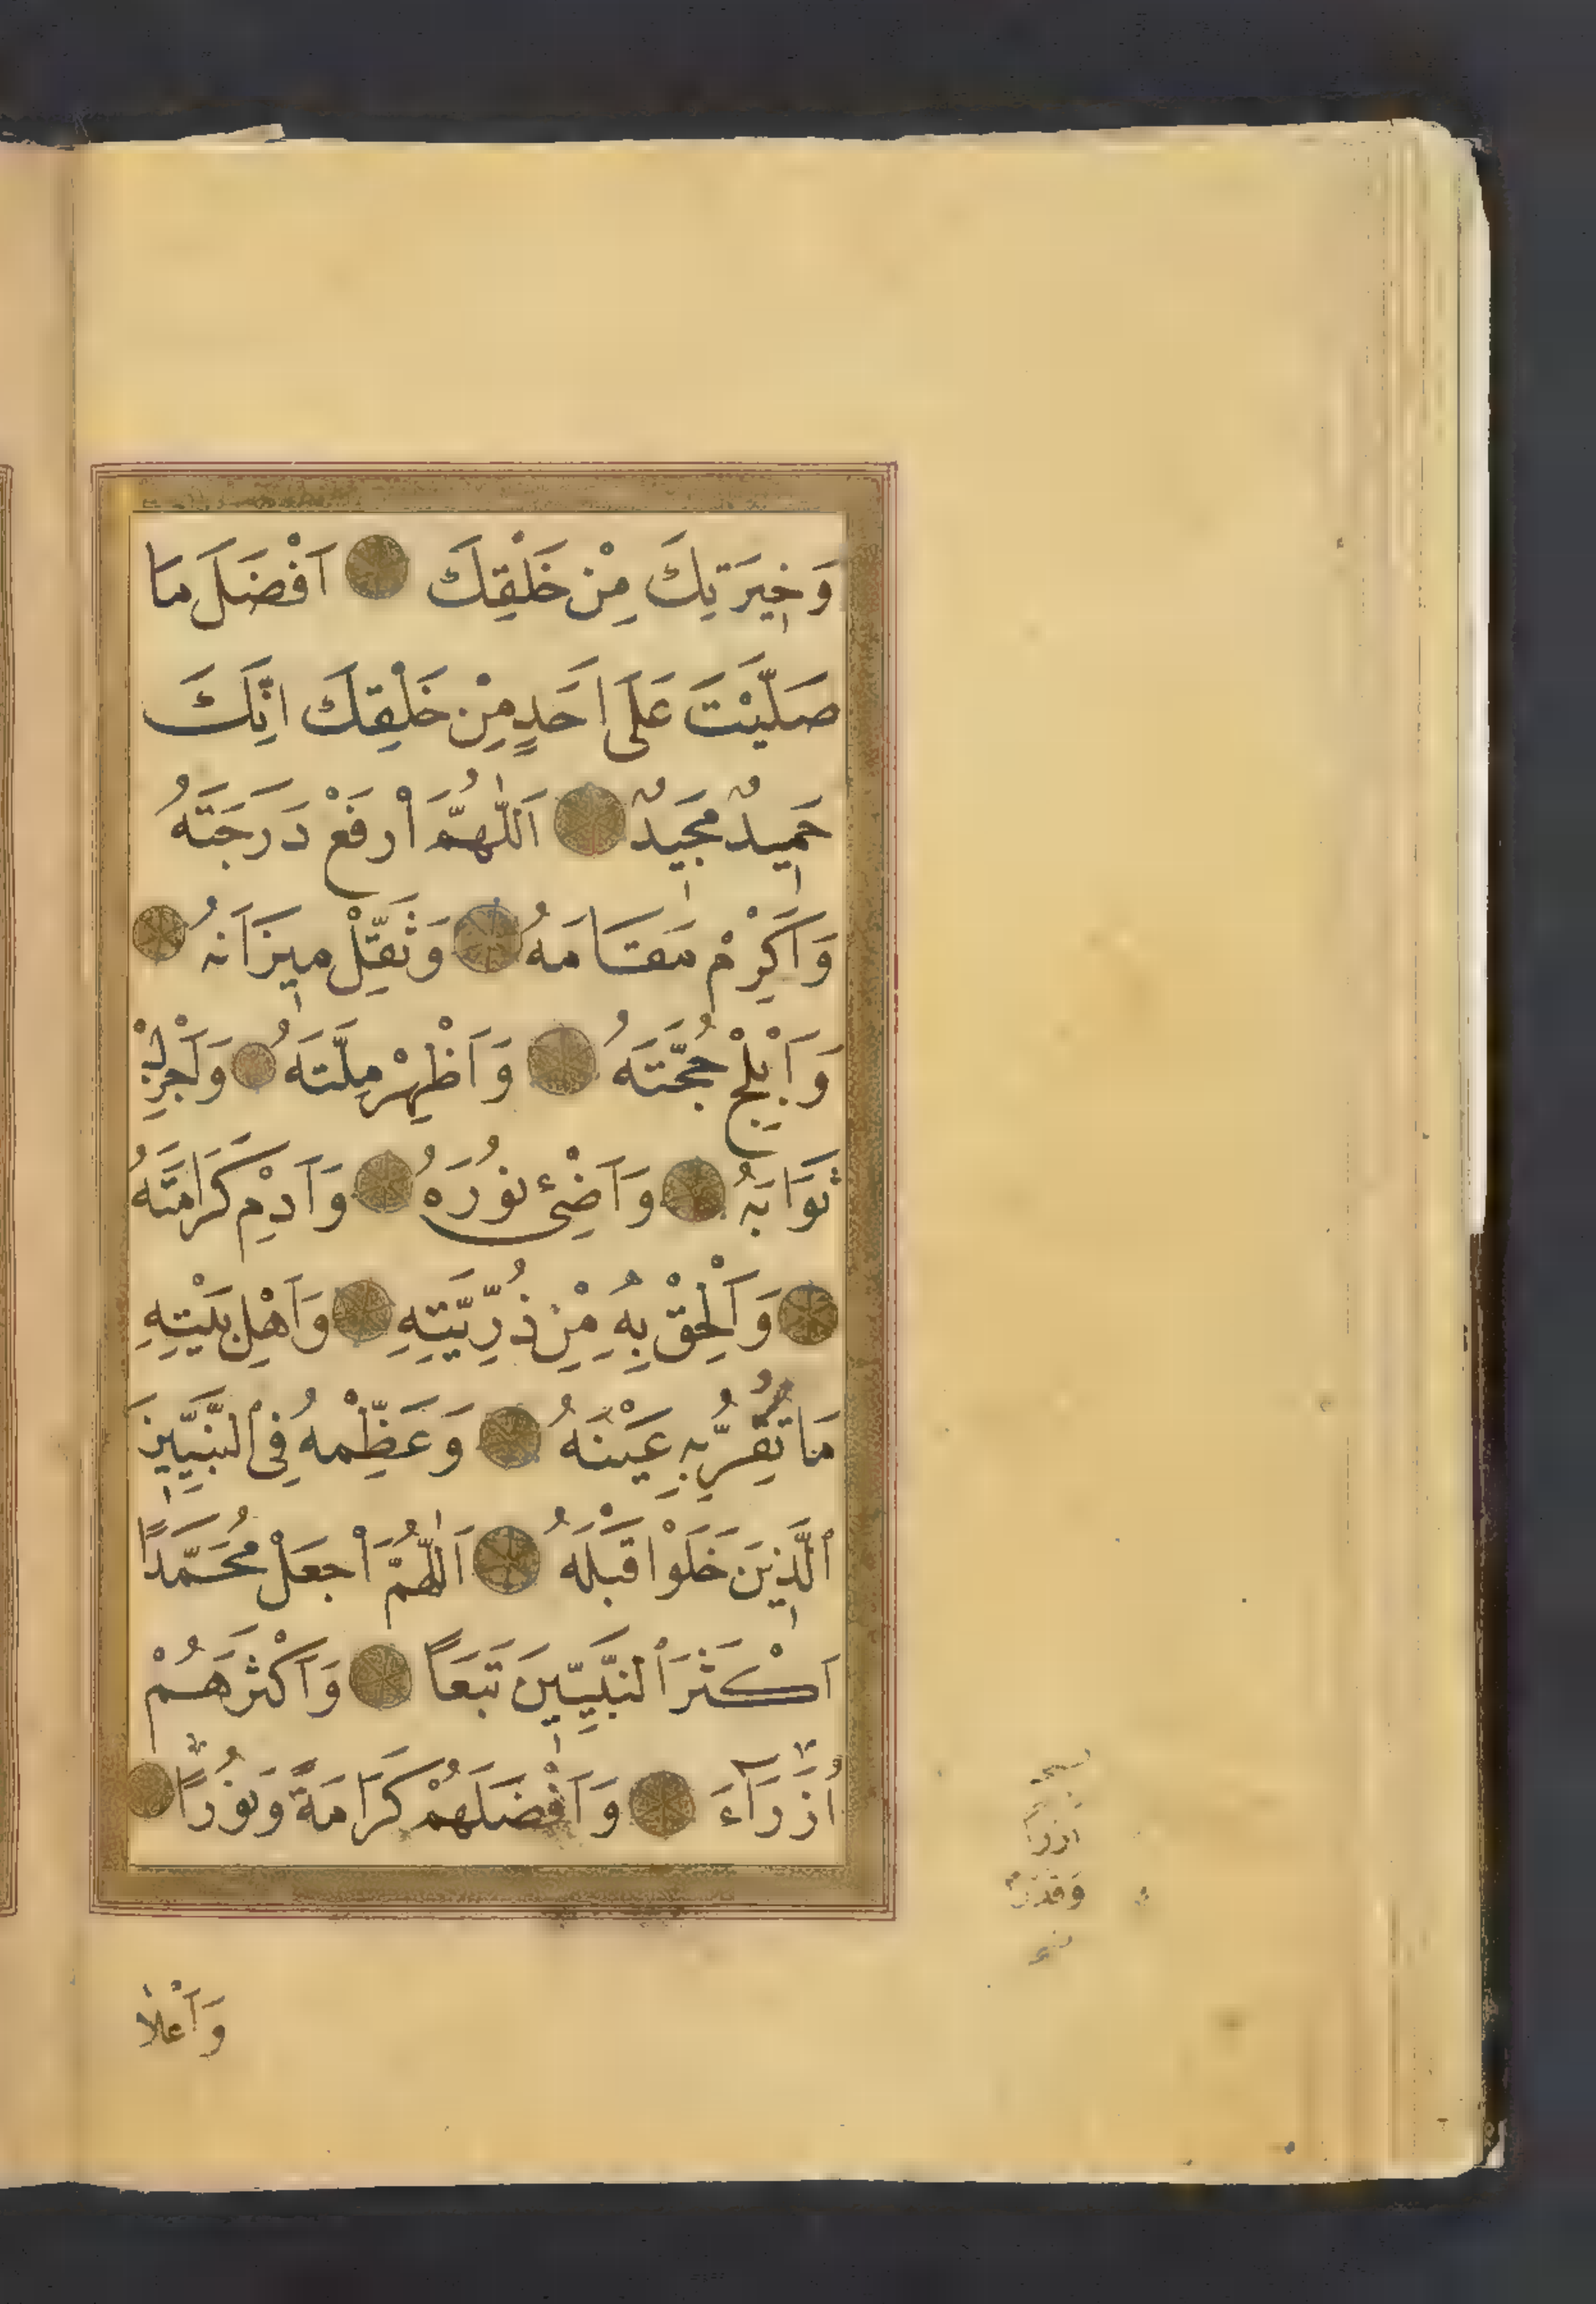 وَخِيَرَتِكَ مِنْ خَلْقِكَ اَفْضَلَ مَا
صَلَّيْتَ عَلَى اَحَدٍ مِنْ خَلْقِكَ اِنَّكَ
حَمِيدٌ مَجِيدٌ اَللّٰهُمَّ اْرفَعْ دَرَجَتَهُ
وَاَكْرِمْ مَقَامَهُ وَثَقِّلْ مِيزَانَهُ
وَاَبْلِجْ حُجَّتَهُ وَاَظْهِرْ مِلَّتَهُ وَاَجْزِلْ
ثَوَابَهُ وَاَضِئْ نُورَهُ وَاَدِمْ كَرَامَتَهُ
وَاَلْحِقْ بِهِ مِنْ ذُرِّيَّتِهِ وَاَهْلِ بَيْتِهِ
مَا تُقِرُّ بِهِ عَيْنَهُ وَعَظِّمْهُ فِى النَّبِيِّينَ
الَّذِينَ خَلَوْا قَبْلَهُ اَللّٰهُمَّ اْجعَلْ مُحَمَّدًا
اَكْثَرَ النَّبِيِّينَ تَبَعًا وَاَكْثَرَهُمْ
اُزَرَآءَ وَاَفْضَلَهُمْ كَرَامَةً وَنُورًا
وَاَعْلَا